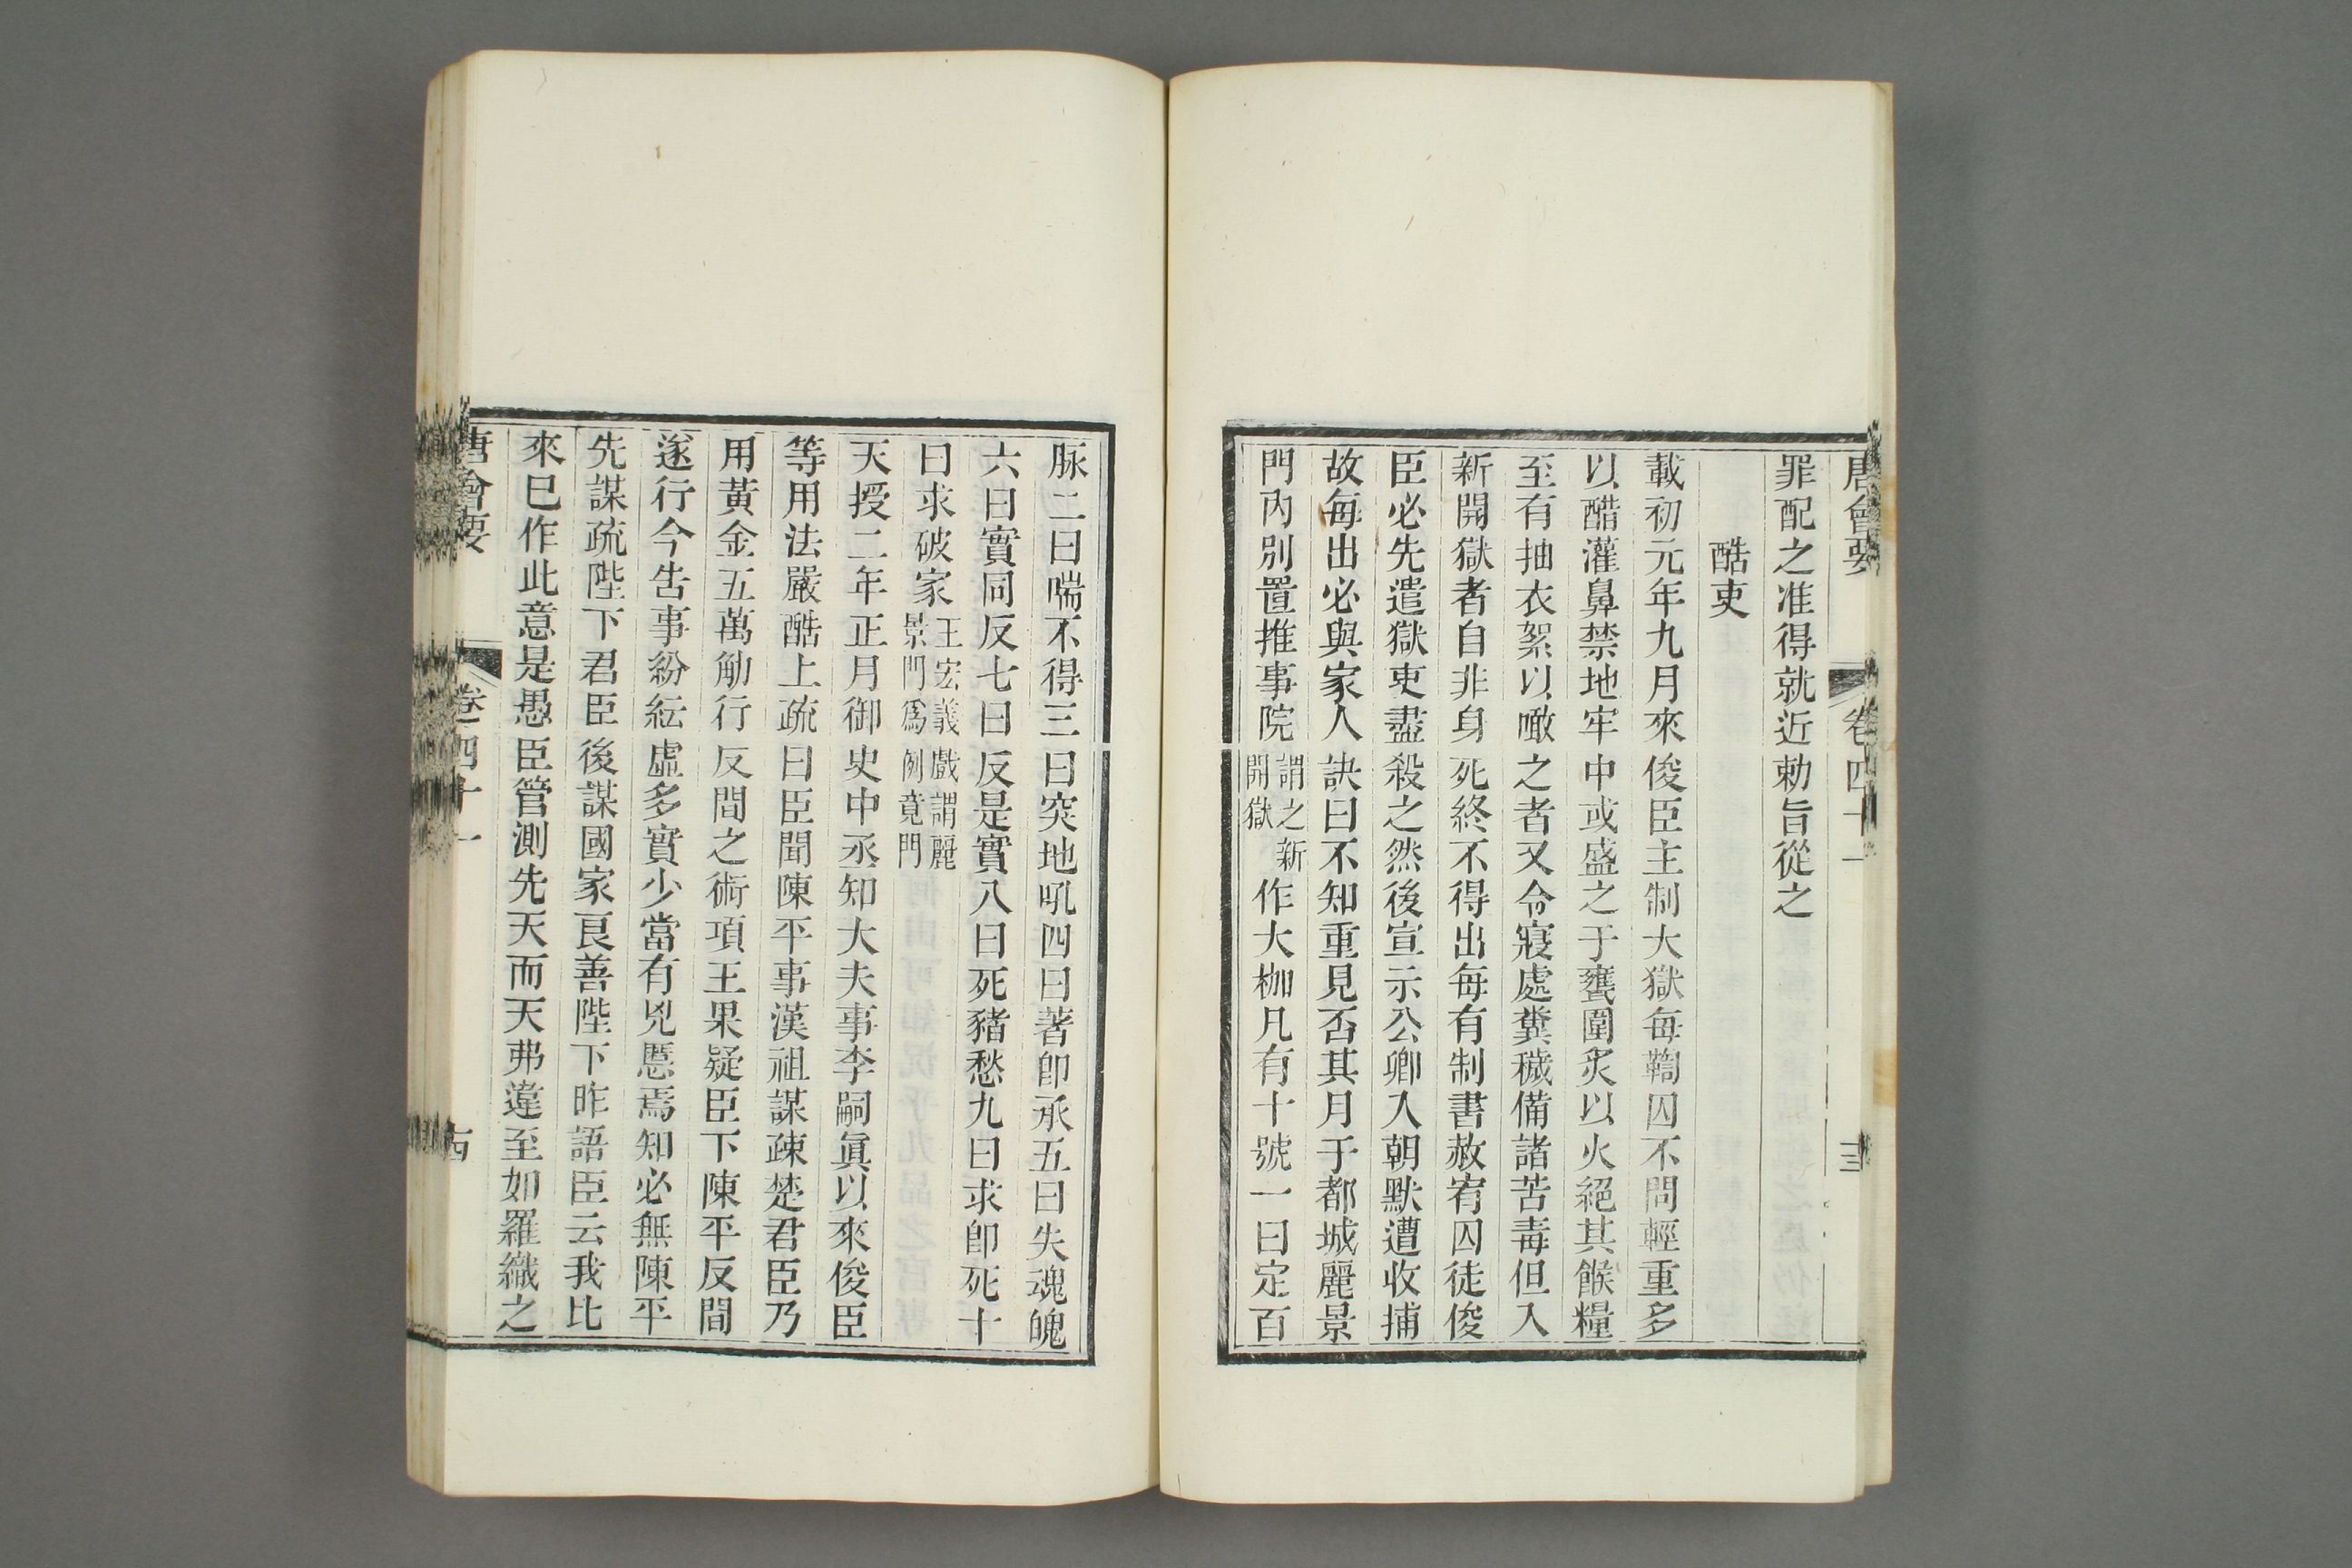 唐會要 卷四十一 十三
罪配之准得就近勅旨從之
酷吏
載初元年九月來俊臣主制大獄每鞫囚不問輕重多
以醋灌鼻禁地牢中或盛之于甕圍炙以火絕其餱糧
至有抽衣絮以噉之者又令寢處糞穢備諸苦毒但入
新開獄者自非身死終不得出每有制書赦宥囚徒俊
臣必先遣獄吏盡殺之然後宣示公卿入朝默遭收捕
故每出必與家人訣曰不知重見否其月于都城麗景
門內別置推事院謂之新開獄作大枷凡有十號一曰定百
脉二曰喘不得三曰突地吼四曰著卽承五曰失魂魄
六曰實同反七曰反是實八曰死豬愁九曰求卽死十
曰求破家王宏義戲謂麗景門爲例竟門
天授二年正月御史中丞知大夫事李嗣眞以來俊臣
等用法嚴酷上疏曰臣聞陳平事漢祖謀疎楚君臣乃
用黃金五萬觔行反間之術項王果疑臣下陳平反間
遂行今告事紛紜虛多實少當有兇慝焉知必無陳平
先謀疏陛下君臣後謀國家良善陛下昨語臣云我比
來已作此意是愚臣管測先天而天弗違至如羅織之
唐會要 卷四十一 十四